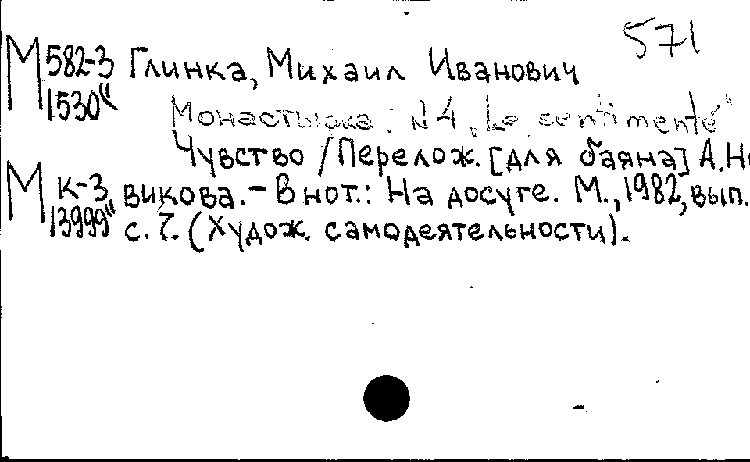 571
М 582-3 Глинка, Михаил Иванович
1530
Монастырка: №4 "Le sentiment"
Чувство / Перелож. [для баяна] А. Но
М К-3 викова. – В нот.: На досуге. М., 1982, вып.
13999 с. 7. (Худож. самодеятельности).